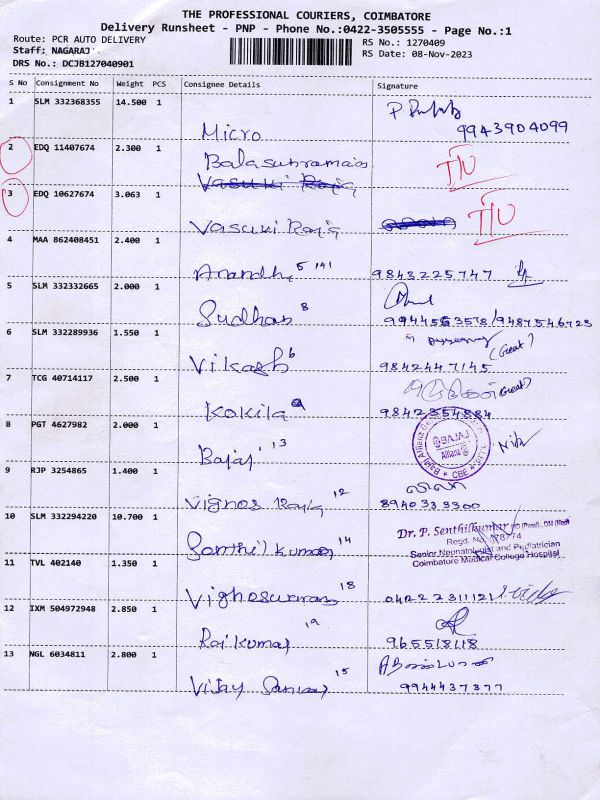 THE PROFESSIONAL COURIERS, COIMBATORE
Delivery Runsheet - PNP - Phone No.:0422-3505555 - Page No.:1
Route: PCR AUTO DELIVERY
RS No.: 1270409
Staff: NAGARAJ
RS Date: 08-Nov-2023
DRS No.: DCJB127040901
S No Consignment No Weight PCS Consignee Details Signature
1 SLM 332368355 14.500 1
Micro 9943904099
2 EDQ 11407674 2.300 1 T/U
Balasubramaios
Vasuki Raja
3 EDQ 10627674 3.063 1 T/U
Vasuki Raja
4 MAA 862408451 2.400 1
Anandh 5 9843225747
5 SLM 332332665 2.000 1
Sudhas 8 9487546723
6 SLM 332289936 1.550 1 (Great)
Vikash 6 9842447145
7 TCG 40714117 2.500 1 (Great)
Kokila 9842354884
8 PGT 4627982 2.000 1 BAJAJ Allianz CBE
Bajaj 13
9 RJP 3254865 1.400 1
Vignos Raja 12 8940333300
10 SLM 332294220 10.700 1
Santhil kumar 14
Dr. P. Senthilkumar
Regd. No. 78774
Senior Neonatologist and Pediatrician
Coimbatore Medical College Hospital
11 TVL 402140 1.350 1
Vighoswaran 18 0422 2311121
12 IXM 504972948 2.850 1
Rajkumar 19 965518118
13 NGL 6034811 2.800 1
Vijay 15 9944437377